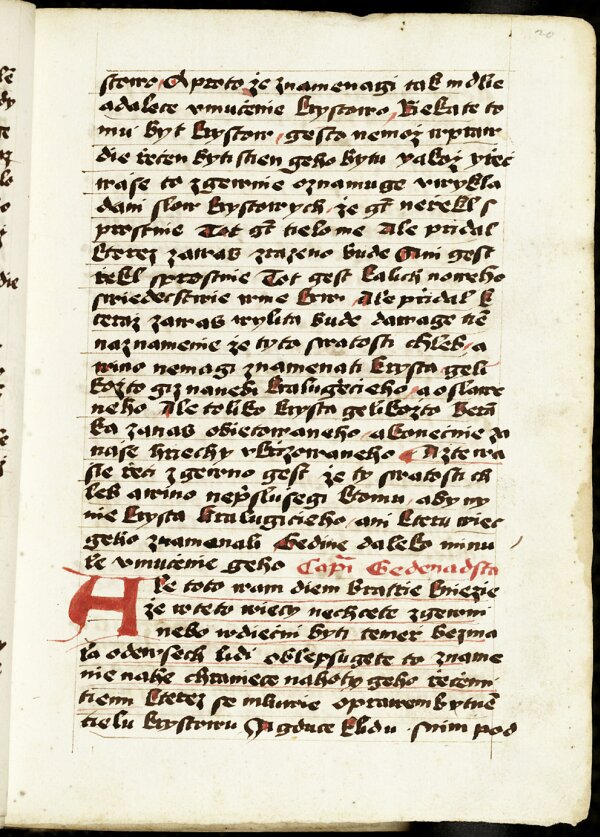 20
stowo A proto że znamenagi tak mdlie
a dalece vmučenie krystowo, Rekate to
mu byt krystow, gesto nemoż wpraw
die řečen byti stien geho bytu yakoż viec
wase to zgewnie oznamuge vwykla
dani slow krystowych, że gt nerekl s
prostnie Tot gt tielo me Ale pridal
kterez zawas zrazeno bude Gini gest
řekl sprostnie Tot gest kalich noweho
swiedectwie w me krwi Ale přidal k
teraz zawas wylita bude dawage tiem
naznamenie że tyto swatosti chleb, a
wino nemagi znamenati krysta geli
kożto giz na nebi kralugicieho, a oslawe
neho Ale toliko krysta gelikożto beran
ka zanas obietowaneho a konecnie za
nase hriechy vkrizowaneho A z te wa
sie řeči zgewno gest że ty swatosti ch
leb a wino nepřslusegi k tomu, aby ny
nie krysta kralugicieho, ani kteru wiec
geho znamenali Gedine daleko minu
le vmučenie geho Capi Gedenadsta
Ale toto wam diem bratřie knieżie
że w teto wiecy nechcete zgewni
nebo wdiecni byti temer bezma
la odewsech lidi oblepsugete to zname
nie nahe chtiece nahoty geho řečenim
tiem kterez se mluwie oprawem bytnem
tielu krystowu A gduce k lidu s nim pod